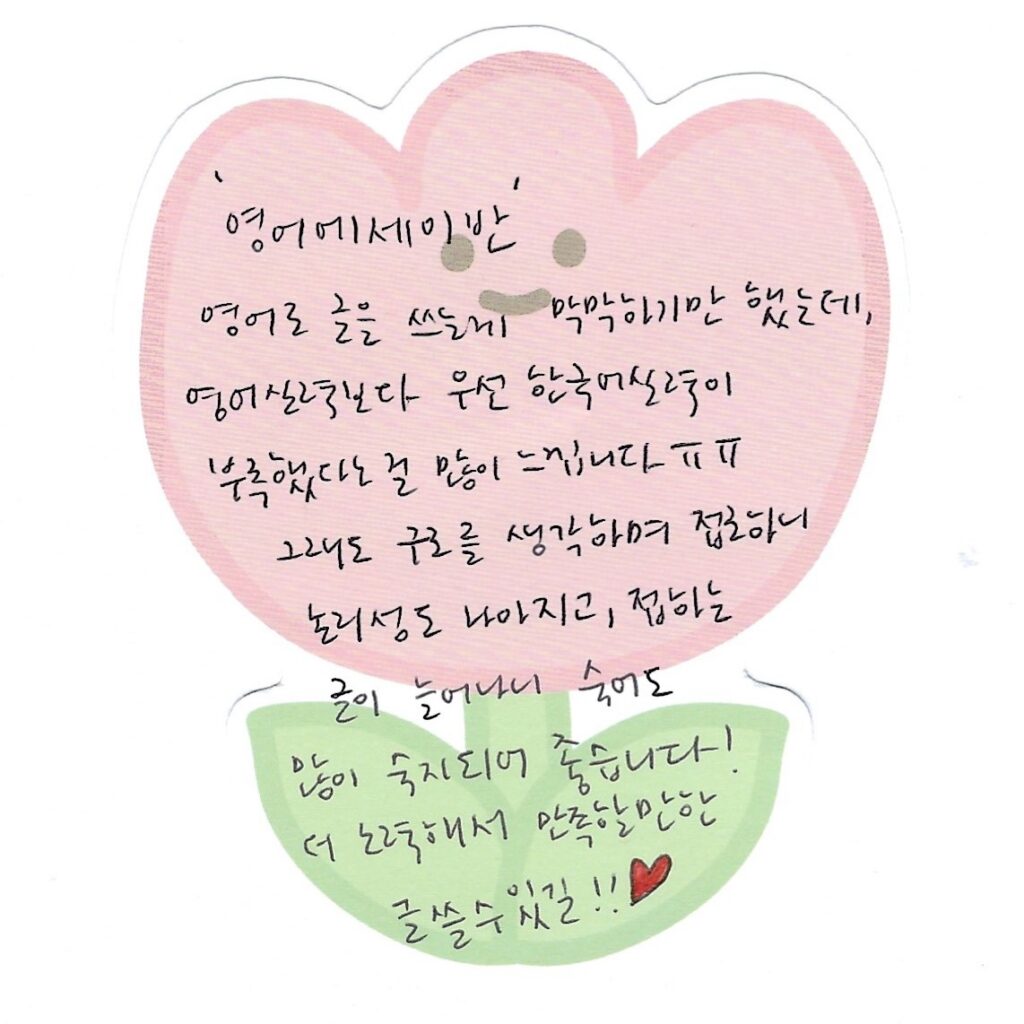 '영어에세이반'
영어로 글을 쓰는게 막막하기만 했는데,
영어실력보다 우선 한국어실력이
부족했다는 걸 많이 느낍니다ㅠㅠ
그래도 구조를 생각하며 접근하니
논리성도 나아지고, 접하는
글이 늘어나니 숙어도
많이 숙지되어 좋습니다!
더 노력해서 만족할만한
글쓸수있길!!